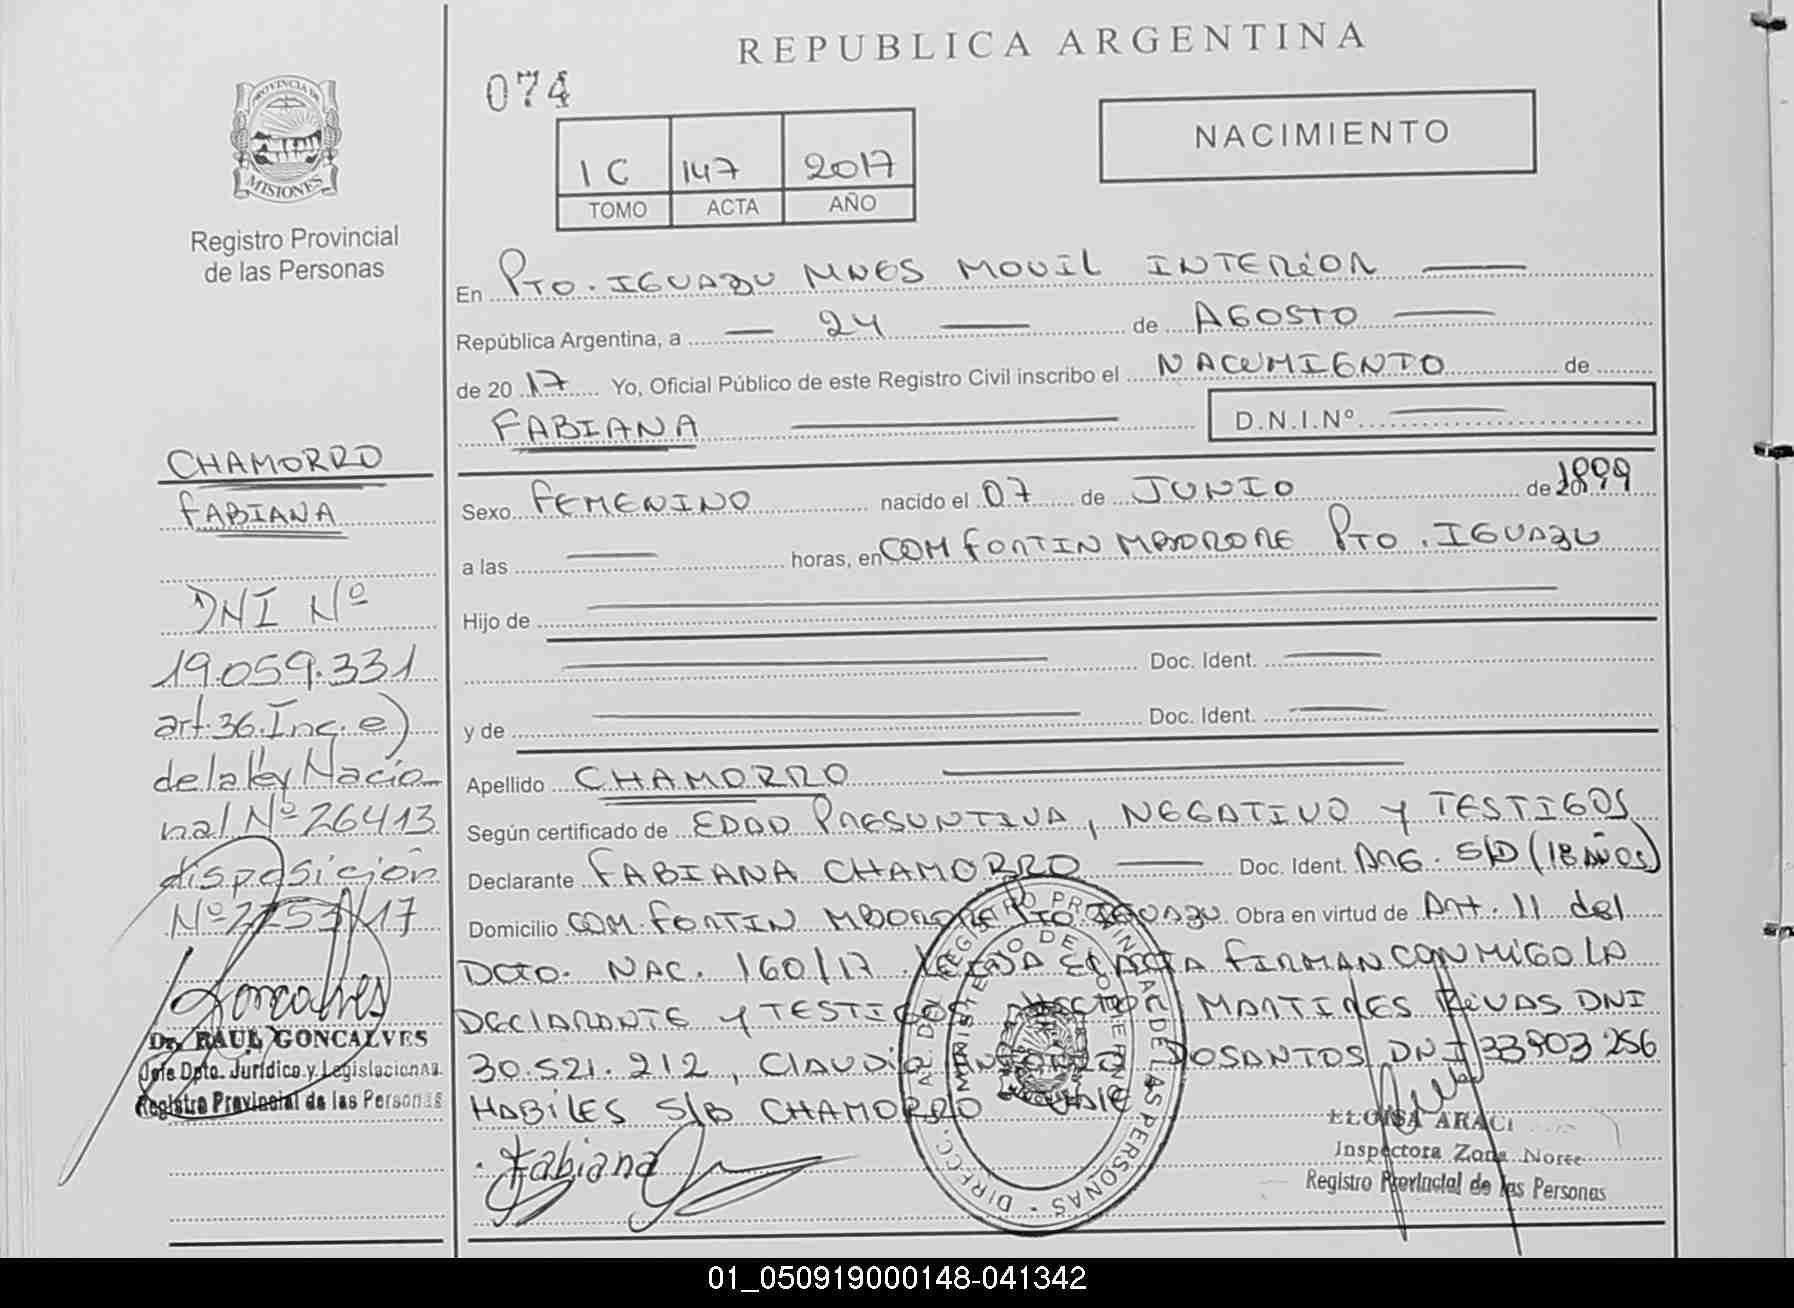 REPUBLICA ARGENTINA
074
PROVINCIA DE
MISIONES
Registro Provincial
de las Personas
1C 147 2017
TOMO ACTA AÑO
NACIMIENTO
En PTO. IGUAZU MNES MOVIL INTERIOR
República Argentina, a 24 de AGOSTO
de 2017 Yo, Oficial Público de este Registro Civil inscribo el NACIMIENTO de
FABIANA D.N.I.Nº
CHAMORRO
FABIANA
DNI Nº
19.059.331
art. 36. Inc. e)
de la ley Nacio-
nal Nº 26413
disposición
Nº 2253/17
Goncalves
Dr. RAUL GONCALVES
Jefe Dpto. Jurídico y Legislacional
Registro Provincial de las Personas
Sexo FEMENINO nacido el 07 de JUNIO de 1899
a las horas, en COM FORTIN MBORORE PTO. IGUAZU
Hijo de
Doc. Ident.
y de Doc. Ident.
Apellido CHAMORRO
Según certificado de EDAD PRESUNTIVA, NEGATIVO Y TESTIGOS
Declarante FABIANA CHAMORRO Doc. Ident. ARG. S/D (18 AÑOS)
Domicilio COM. FORTIN MBORORE PTO IGUAZU Obra en virtud de Art. 11 del
DCTO. NAC. 160/17. LEIDA EL ACTA FIRMAN CONMIGO LA
DECLARANTE Y TESTIGOS HECTOR MARTINES RIVAS DNI
30.521.212, CLAUDIA DOSANTOS DNI 33903256
HABILES S/B CHAMORRO VALE
Fabiana
DIRECC. GRAL DEL REGISTRO PROVINCIAL DE LAS PERSONAS
MINISTERIO DE GOBIERNO
ELOISA ARACI
Inspectora Zona Norte
Registro Provincial de las Personas
01_050919000148-041342